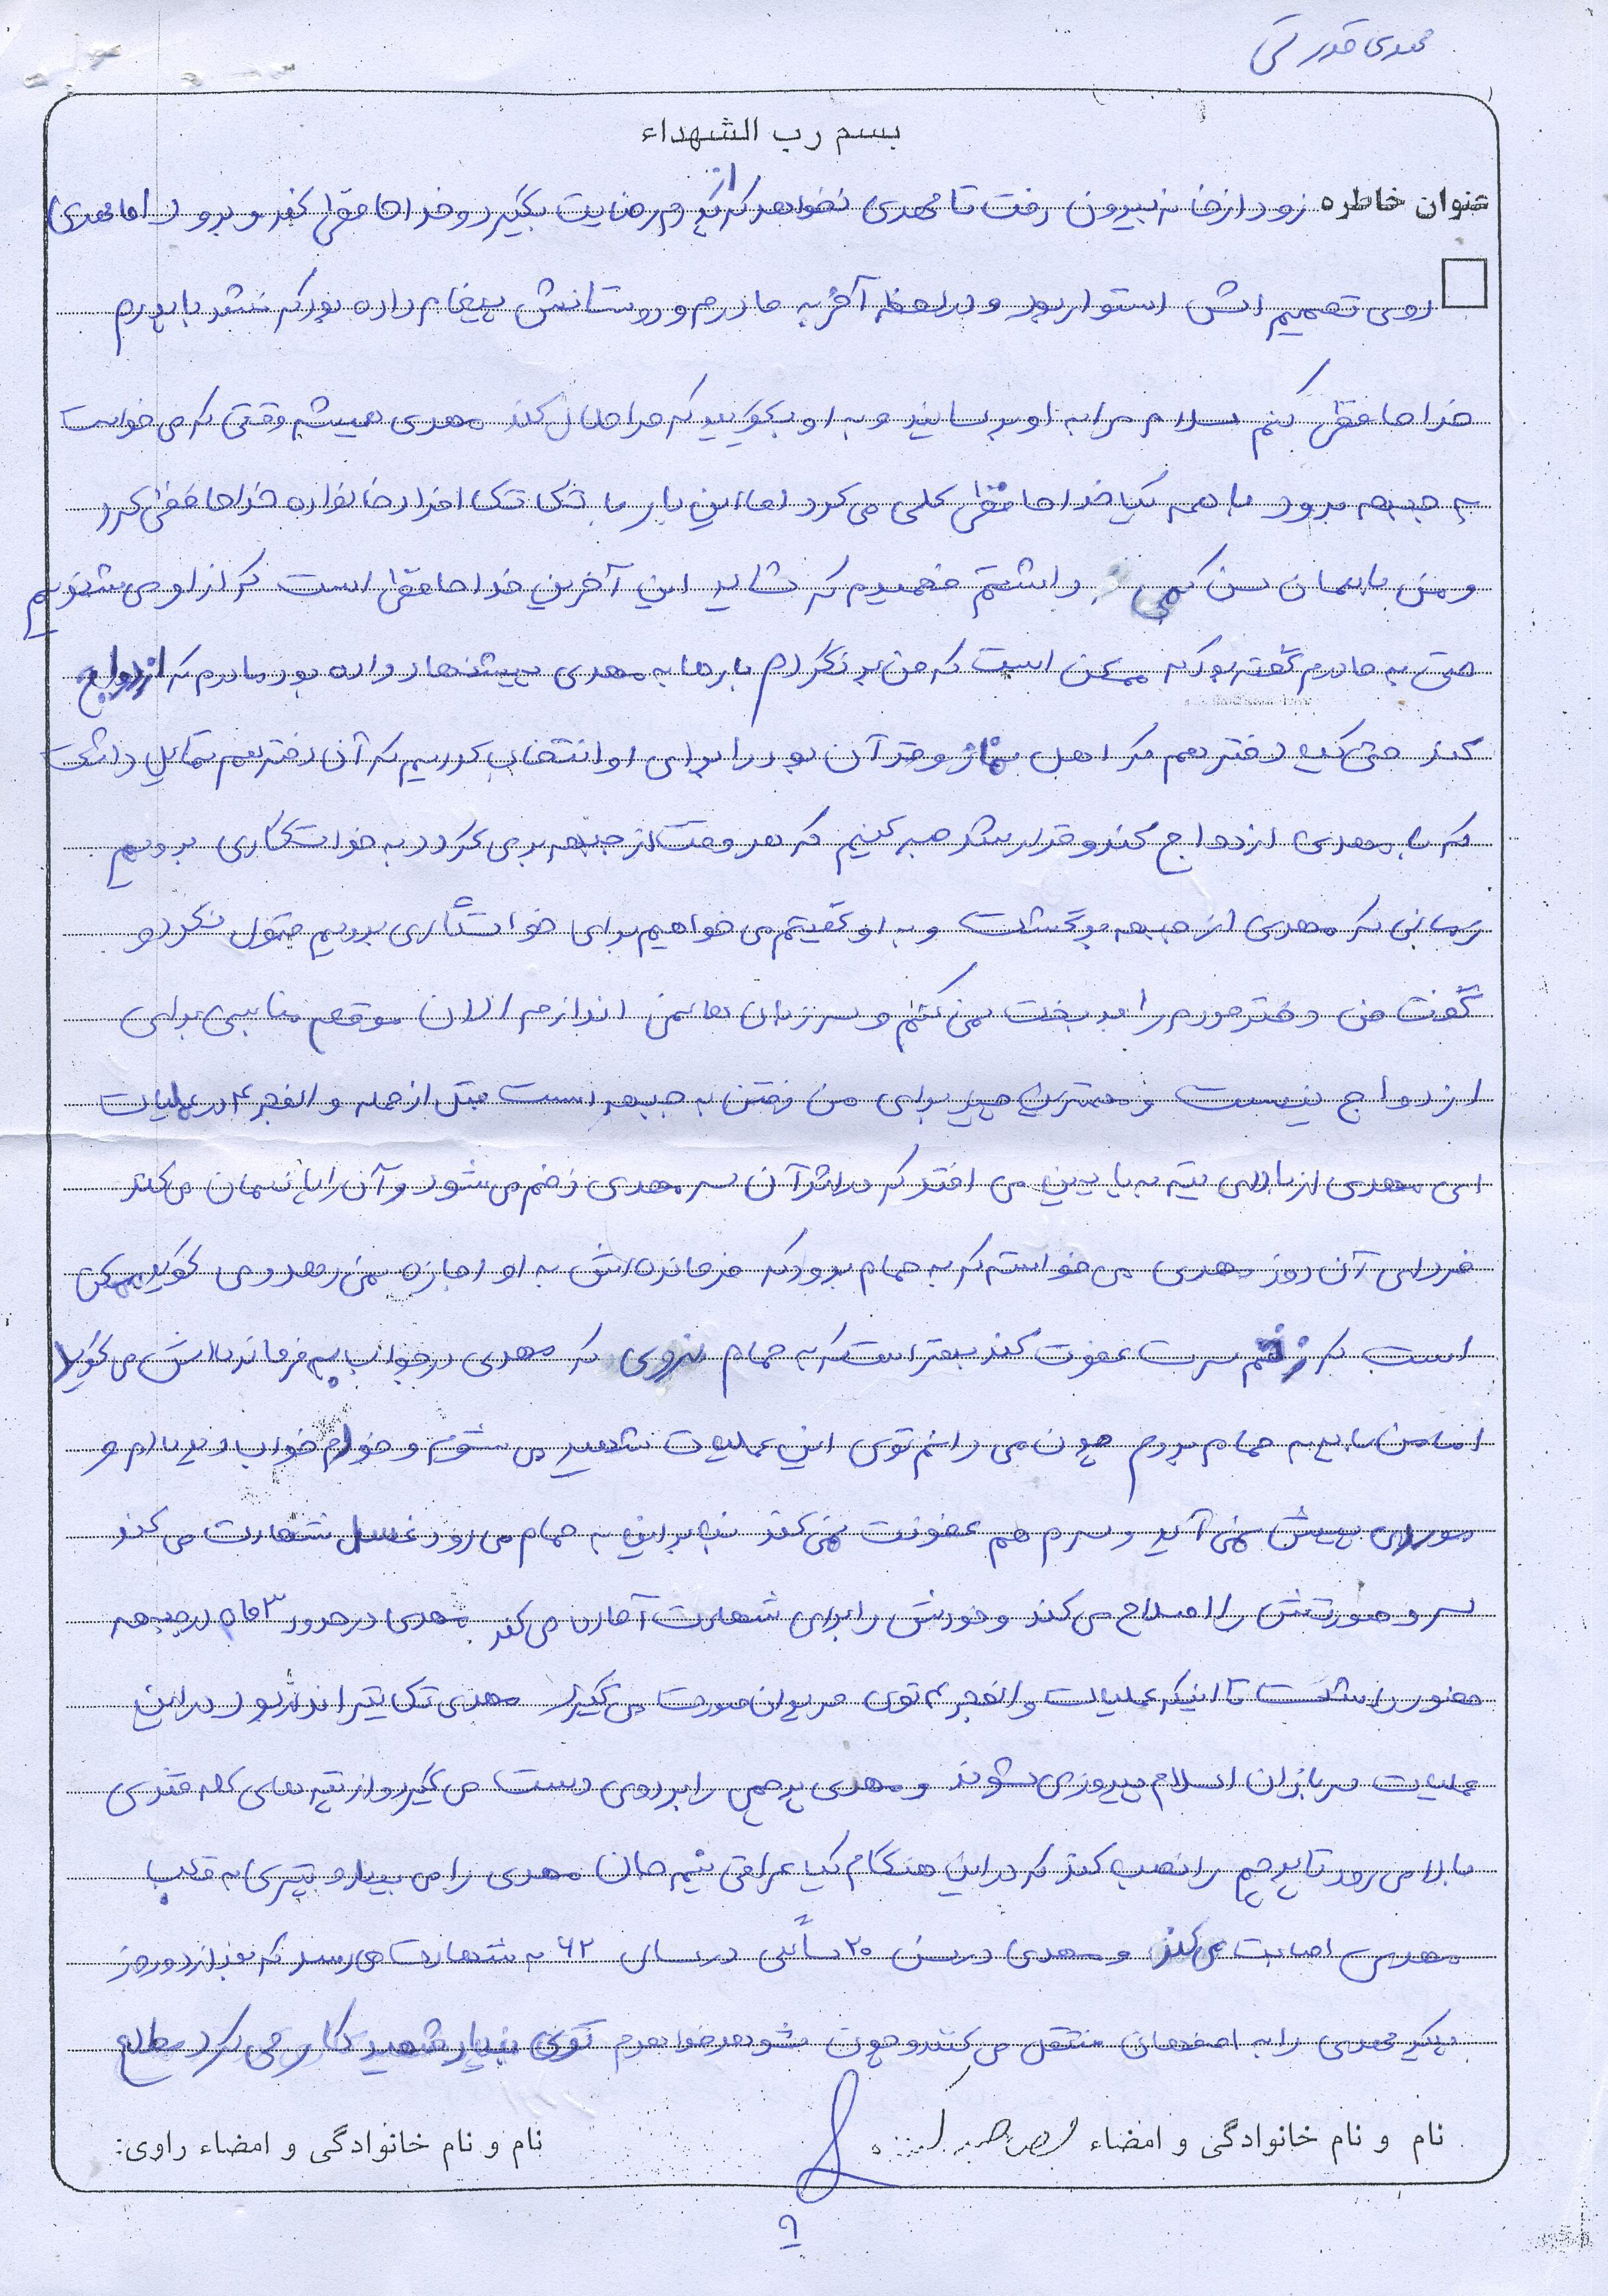 مهدی قدرتی
بسم رب الشهداء
عنوان خاطره زود از خانه بیرون رفت تا مهدی نخواهد که از پدرم رضایت بگیرد و خداحافظی کند و برود (اما مهدی)
روی تصمیم اش استوار بود و در لحظه آخر به مادرم و دوستانش پیغام داده بود که نشد با پدرم
خداحافظی کنم سلام مرا به او برسانید و به او بگویید که مرا حلال کند مهدی همیشه وقتی که می خواست
به جبهه برود با همه یک خداحافظی کلی می کرد اما این بار با تک تک افراد خانواده خداحافظی کرد
و من با همان سن کمی که داشتم فهمیدم که شاید این آخرین خداحافظی است که از او می شنویم
حتی به مادرم گفته بود که ممکن است که من برنگردم بارها به مهدی پیشنهاد داده بود مادرم که ازدواج
کند حتی یک دختر هم که اهل نماز و قرآن بود را برای او انتخاب کردیم که آن دختر هم تمایل داشت
که با مهدی ازدواج کند و قرار شد صبر کنیم که هر وقت از جبهه برمی گردد به خواستگاری برویم
زمانی که مهدی از جبهه برگشت و به او گفیتم می خواهیم برای خواستگاری برویم قبول نکرد و
گفت من دختر مردم را بدبخت نمی کنم و سر زبان ها نمی اندازم الان موقع مناسبی برای
ازدواج نیست و مهمترین چیز برای من رفتن به جبهه است قبل از حمله والفجر ۴ در عملیات
ای مهدی از بالای تپه به پایین می افتد که در اثر آن سر مهدی زخم می شود و آن را پانسمان می کند
فردای آن روز مهدی می خواسته که به حمام برود که فرمانده اش به او اجازه نمی دهد و می گوید ممکن
است که زخم سرت عفونت کند بهتر است که به حمام نروی که مهدی در جواب به فرمانده اش می گوید
اما من باید به حمام بروم چون می دانم توی این عملیات شهید می شوم و خودم خواب دیده ام و
موردی پیش نمی آید و سرم هم عفونت نمی کند بنابراین به حمام می رود غسل شهادت می کند
سر و صورتش را اصلاح می کند و خودش را برای شهادت آماده می کند مهدی در حدود ۳ ماه در جبهه
حضور داشت تا اینکه عملیات والفجر ۴ توی مریوان صورت می گیرد مهدی تک تیرانداز بود در این
عملیات سربازان اسلام پیروز می شوند و مهدی پرچمی را بر روی دست می گیرد و از تپه های کله قندی
بالا می رود تا پرچم را نصب کند که در این هنگام یک عراقی نیمه جان مهدی را می بیند و تیری به قلب
مهدی اصابت می کند و مهدی در سن ۲۰ سالگی در سال ۶۲ به شهادت می رسد که بعد از دو روز
پیکر مهدی را به اصفهان منتقل می کنند و چون شوهر خواهرم توی بنیاد شهید کار می کرد مطلع
نام و نام خانوادگی و امضاء
نام و نام خانوادگی و امضاء راوی:
۹